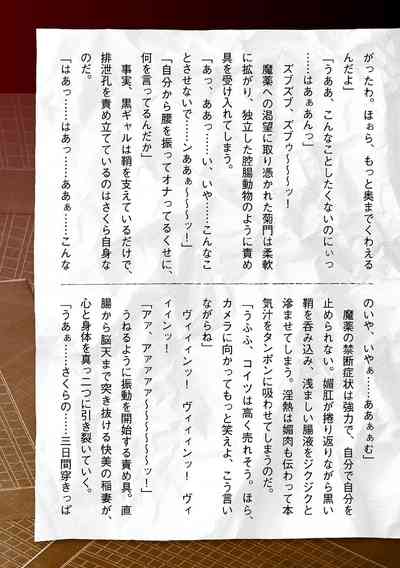 がったわ。ほぉら、もっと奥までくわえる
んだよ」
「うああ、こんなことしたくないのにぃっ
……はあぁあんっ」
ズブズブ、ズブゥ～～～ッ！
魔薬への渇望に取り憑かれた菊門は柔軟
に拡がり、独立した腔腸動物のように責め
具を受け入れてしまう。
「あっ、ああっ……い、いや……こんなこ
とさせないで……ンああぁ～～～ッ！」
「自分から腰を振ってオナってるくせに、
何を言ってるんだか」
事実、黒ギャルは鞘を支えているだけで、
排泄孔を責め立てているのはさくら自身な
のだ。
「はあっ……はあっ……ああぁ……こんな
のいや、いやぁ……ああぁぁむ」
魔薬の禁断症状は強力で、自分で自分を
止められない。媚肛が捲り返りながら黒い
鞘を呑み込み、浅ましい腸液をジクジクと
滲ませてしまう。淫熱は媚肉も伝わって本
気汁をタンポンに吸わせてしまうのだ。
「うふふ、コイツは高く売れそう。ほら、
カメラに向かってもっと笑えよ、こう言い
ながらね」
ヴィィィンッ！　ヴィィィンッ！　ヴィ
ィィンッ！
「アァ、アァァァァ～～～～～～ッ！」
うねるように振動を開始する責め具。直
腸から脳天まで突き抜ける快美の稲妻が、
心と身体を真っ二つに引き裂いていく。
「うあぁ……さくらの……三日間穿きっぱ